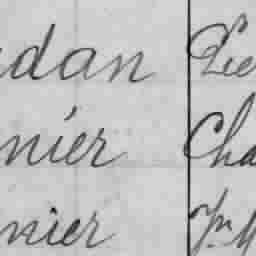 dan Pie
nier Cha
nier Jn M